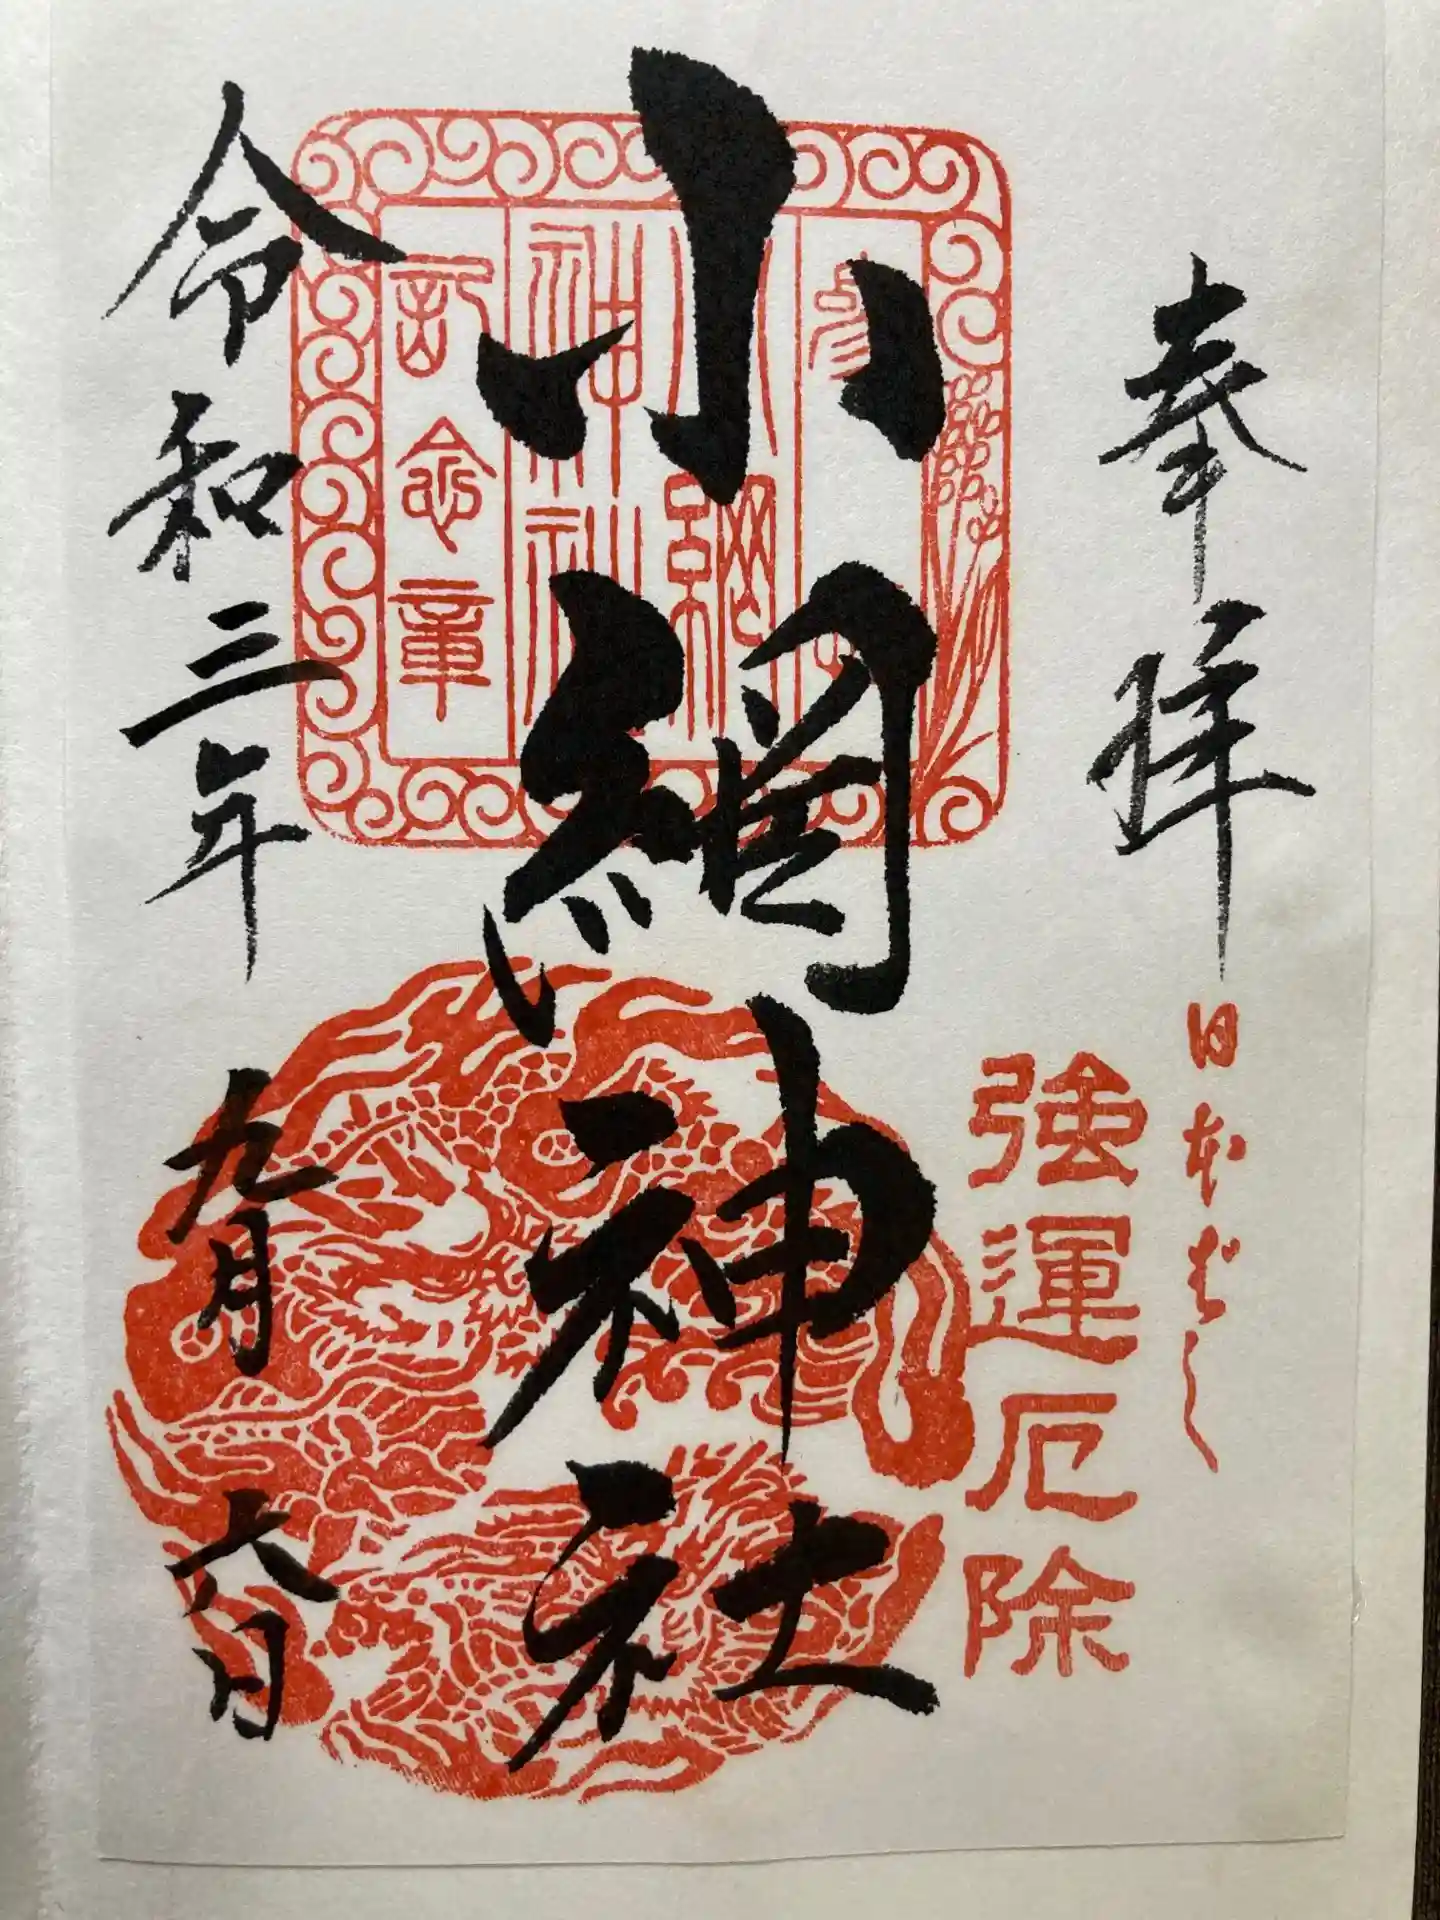 奉拝
日本ばし
強運厄除
小網神社
参拝
小網
神社
記念章
令和三年
九月
六日